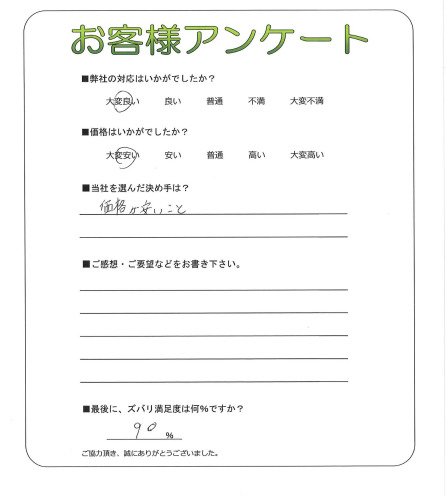 お客様アンケート
■弊社の対応はいかがでしたか？
大変良い 良い 普通 不満 大変不満
■価格はいかがでしたか？
大変安い 安い 普通 高い 大変高い
■当社を選んだ決め手は？
価格が安いこと
■ご感想・ご要望などをお書き下さい。
■最後に、ズバリ満足度は何%ですか？
90 %
ご協力頂き、誠にありがとうございました。